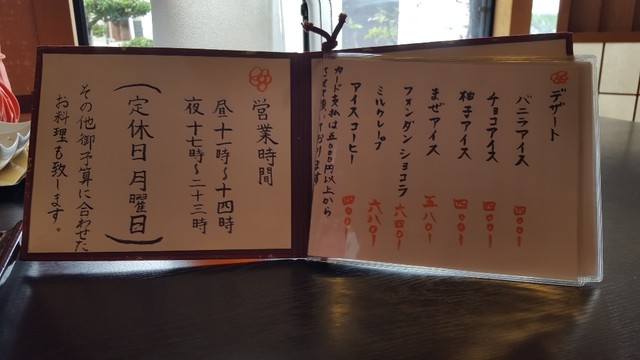 デザート
バニラアイス 四〇〇ー
チョコアイス 四〇〇ー
柚子アイス 四〇〇ー
まぜアイス 五八〇ー
フォンダンショコラ 六四〇ー
ミルクレープ 六八〇ー
アイスコーヒー 四〇〇ー
カード支払は五〇〇〇円以上から
営業時間
昼 十一時〜十四時
夜 十七時〜二十三時
(定休日 月曜日)
その他御予算に合わせた
お料理も致します。